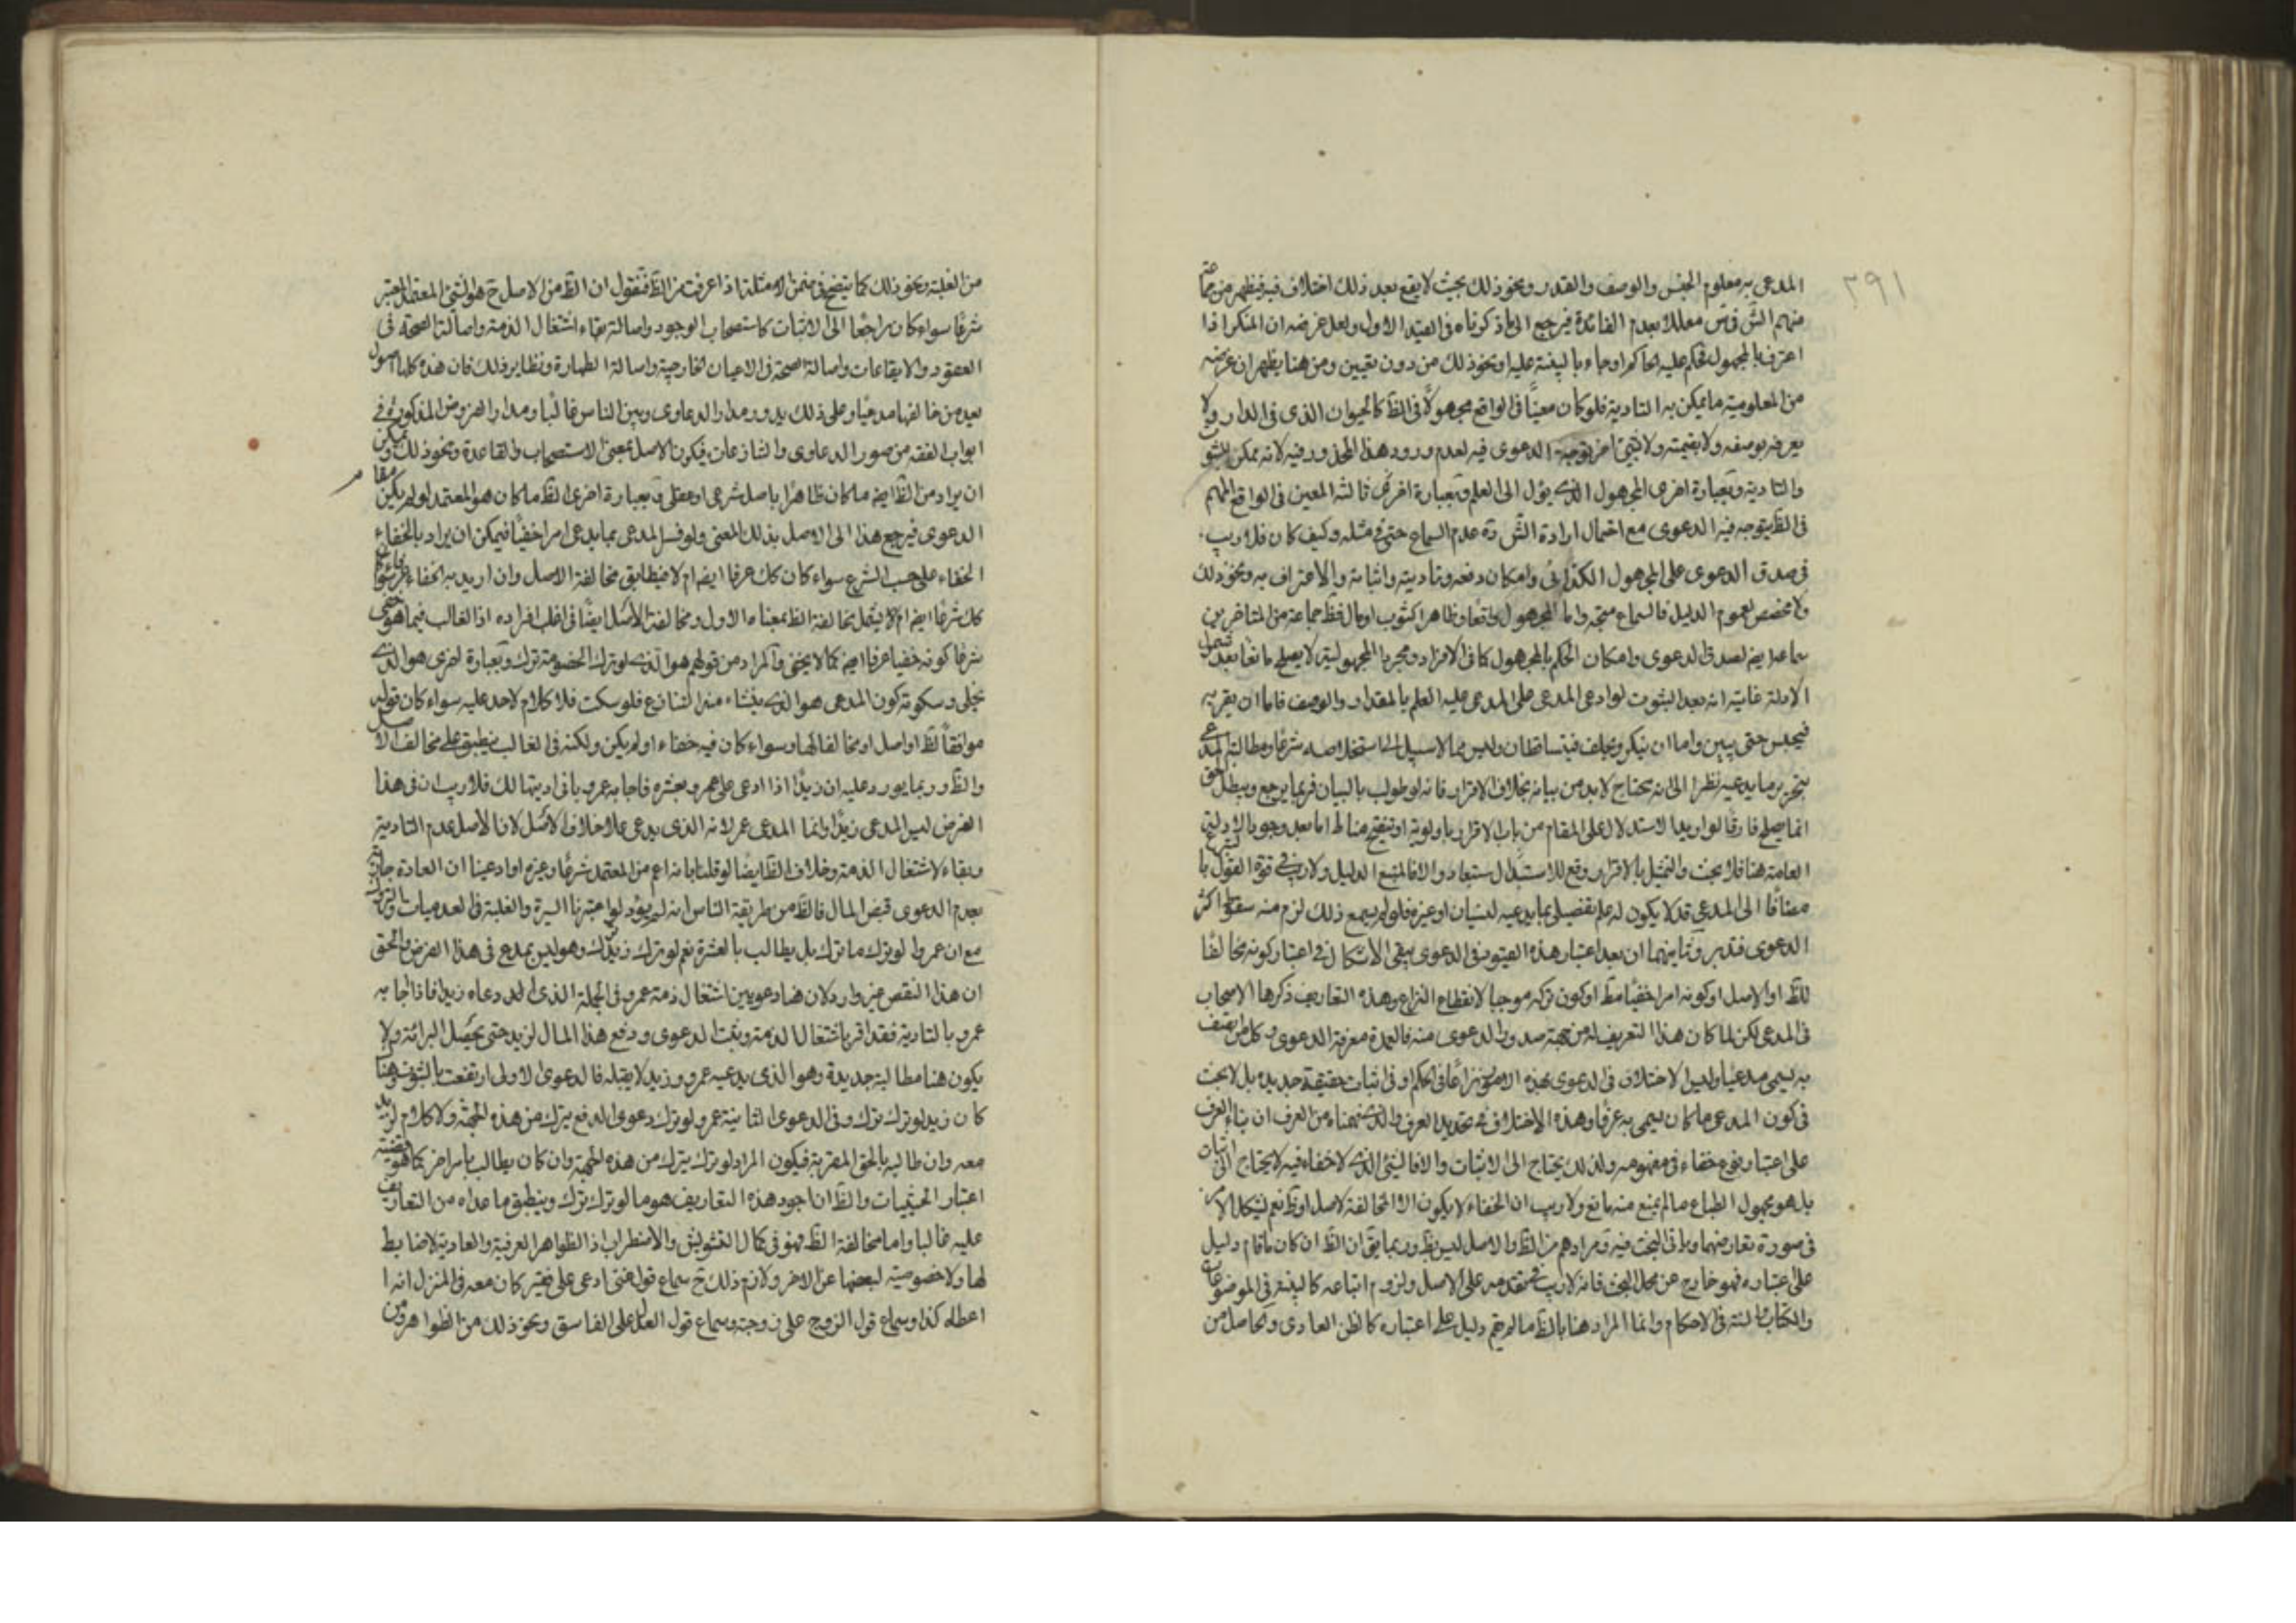 ٢٩١
المدعى به معلوم الجنس والوصف والقدر ونحو ذلك بحيث لا يقع بعد ذلك اختلاف فيه فيظهر من جماعة
منهم الشّ في س معللا بعدم الفائدة فيرجع الى ما ذكرناه في القيد الاول ولعل غرضه ان المنكر اذا
اعترف بالمجهول فحكم عليه الحاكم او جاء بالبينة عليه او نحو ذلك من دون تعيين ومن هنا يظهر ان غرضه
من المعلومية ما يمكن به التادية فلو كان معينًا في الواقع مجهولًا في الظّ كالحيوان الذى في الدار ولا
يعرفه بوصفه ولا بقيمته ولا بشئ اخر توجه الدعوى فيه لعدم ورود هذا المحذور فيه لانه يمكن الثبوت
والتادية وبعبارة اخرى المجهول الذى يؤل الى العلم وبعبارة اخرى ثالثه المعين في الواقع المبهم
في الظّ يتوجه فيه الدعوى مع احتمال ارادة الشّ ره عدم السماع حتى في مثله وكيف كان فلا ريب
في صدق الدعوى على المجهول الكذائى وامكان دفعه وتاديته واثباته والاعتراف به ونحو ذلك
ولا مخصص لعموم الدليل فالسماع متجه واما المجهول واقعًا وظاهرا كثوب او مال فظّ جماعة من المتاخرين
سماعه ايضا لصدق الدعوى وامكان الحكم بالمجهول كما في الاقرار ومجرد المجهولية لا يصلح مانعا بعد شمول
الادلة غايته انه بعد الثبوت لو ادعى المدعى على المدعى عليه العلم بالمقدار والوصف فاما ان يقر به
فيحبس حتى يبين واما ان ينكر ويحلف فيتساقطان وليس مما لا سبيل الى استخلاصه شرعًا ومطالبة المدعى
بتحرير ما يدعيه نظرا الى انه يحتاج لا بد من بيانه بخلاف الاقرار فانه لو طولب بالبيان فربما يرجع ويبطل الحق
انما يصلح فارقًا لو اريد الاستدلال على المقام من باب الاقرار باولوية او تنقيح مناط اما بعد وجود الادلة
العامة هنا فلا بحث والتمثيل بالاقرار وقع للاستبدال ستبعاد والا فالمتبع الدليل ولا ريب في قوة القول بالسماع
مضافًا الى المدعى قد لا يكون له علم تفصيلى بما يدعيه لنسيان او غيره فلو لم يسمع ذلك لزم منه سقوط اكثر
الدعوى فتدبر وثانيهما ان بعد اعتبار هذه القيود في الدعوى يبقى الاشكال في اعتبار كونه مخالفًا
للظّ او الاصل او كونه امرا خفيًا مطّ او كون تركه موجبا لانقطاع النزاع وهذه التعاريف ذكرها الاصحاب
في المدعى لكن لما كان هذا التعريف له من جهة صدور الدعوى منه فالعمدة معرفة الدعوى وكل من يتصف
به يسمى مدعيًا وليس الاختلاف في الدعوى بهذه الامور نزاعًا في الحكم او في اثبات حقيقة جديدة بل لا بحث
في كون المدعى ما كان يسمى به عرفًا وهذه الاختلاف في تحديد العرف والذى فهمناه من العرف ان بناء العرف
على اعتبار نوع خفاء في مفهومه ولذلك يحتاج الى الاثبات والا فالشئ الذى لا خفاء فيه لا يحتاج الى اثبات
بل هو مجبول الطباع ما لم يمنع منه مانع ولا ريب ان الخفاء لا يكون الا لمخالفة لاصل او ظّ نعم يشكل الامر
في صورة تعارضهما وياتى البحث فيه ومرادهم من الظّ والاصل ليس بظّ وربما يقّ ان الظّ ان كان ما قام دليل
على اعتباره فهو خارج عن محل البحث فانه لا ريب في تقدمه على الاصل ولزوم اتباعه كالبينة في الموضوعات
والكتاب والسنة في الاحكام وانما المراد هنا بالظّ ما لم يقم دليل على اعتباره كالظن العادى والحاصل من
من الغلبة ونحو ذلك كما يتضح في ضمن الامثلة اذا عرفت من الظّ فنقول ان الظّ من الاصل ح هو الشئ المعتمد المعتبر
شرعًا سواء كان راجعًا الى الاثبات كاستصحاب الوجود واصالة بقاء اشتغال الذمة واصالة الصحة في
العقود والايقاعات واصالة الصحة في الاعيان الخارجية واصالة الطهارة ونظاير ذلك فان هذه كلها اصول
يعد من خالفها مدعيًا وعلى ذلك يدور مدار الدعاوى وبين الناس غالبًا ومدار الفروض المذكورة في
ابواب الفقه من صور الدعاوى والتنازعات فيكون الاصل بمعنى الاستصحاب والقاعدة ونحو ذلك ويمكن
ان يراد من الظّ ايضا ما كان ظاهرًا باصل شرعى او عقلى وبعبارة اخرى الظّ ما كان هو المعتمد لو لم يكن مقام
الدعوى فيرجع هذا الى الاصل بذلك المعنى ولو فسر المدعى بما يدعى امرا خفيًا فيمكن ان يراد بالخفاء
الخفاء على حسب الشرع سواء كان كك عرفا ايضا ام لا فيطابق مخالفة الاصل وان اريد به الخفاء عرفا سواء كان
كك شرعًا ايضا ام لا فيشمل مخالفة الظّ بمعناه الاول ومخالفة الاصل ايضًا في اغلب افراده اذ الغالب فيما هو خفى
شرعا كونه خفيا عرفا ايضا كما لا يخفى والمراد من قولهم هو الذى لو ترك الخصومة ترك وبعبارة اخرى هو الذى
يخلى وسكوته كون المدعى هو الذى ينشاء منه التنازع فلو سكت فلا كلام لاحد عليه سواء كان قوله
موافقًا لظّ او اصل او مخالفا لهما وسواء كان فيه خفاء او لم يكن ولكنه في الغالب ينطبق على مخالف الاصل
والظّ وربما يورد عليه ان زيدًا اذا ادعى على عمرو بعشره فاجابه عمرو بانى اديتها لك فلا ريب ان في هذا
الفرض ليس المدعى زيدًا وانما المدعى عمرو لانه الذى يدعى على خلاف الاصل لان الاصل عدم التادية
وبقاء لاشتغال الذمة وخلاف الظّ ايضًا لو قلنا بانه اعم من المعتمد شرعًا وغيره او ادعينا ان العادة جارية
بعدم الدعوى قبض المال فالظّ من طريقة الناس انه لم يؤد لو اعتبرنا السيرة والغلبة في العدميات والتروك
مع ان عمروا لو ترك ما ترك بل يطالب بالعشرة نعم لو ترك زيد ترك وهو ليس بمدع في هذا الفرض والحق
ان هذا النقض غير وارد لان هنا دعويين اشتغال ذمة عمرو في الجملة الذى ادعاه زيد فاذا اجابه
عمرو بالتادية فقد اقر باشتغال الذمة وثبت الدعوى ودفع هذا المال لزيد حتى يحصل البرائة ولا
يكون هنا مطالبة جديدة وهو الذى يدعيه عمرو وزيد لا يقبله فالدعوى الاولى ارتفعت بالثبوت وهنا
كان زيد لو ترك ترك وفي الدعوى الثانية عمرو لو ترك دعوى الدفع يترك من هذه الجهة ولا كلام لزيد
معه وان طالبه بالحق المقر به فيكون المراد لو ترك يترك من هذه الجهة وان كان يطالب بامر اخر كما هو قضية
اعتبار الحيثيات والظّ ان اجود هذه التعاريف هو ما لو ترك ترك وينطبق ما عداه من التعاريف
عليه غالبا واما مخالفة الظّ فهو في كمال التشويش والاضطراب اذ الظواهر العرفية والعادية لا ضابط
لها ولا خصوصية لبعضها عن الاخر ولازم ذلك ح سماع قول غنى ادعى على فقير كان معه في المنزل انه
اعطاه كذا وسماع قول الزوج على زوجته وسماع قول العدل على الفاسق ونحو ذلك من الظواهر ومن